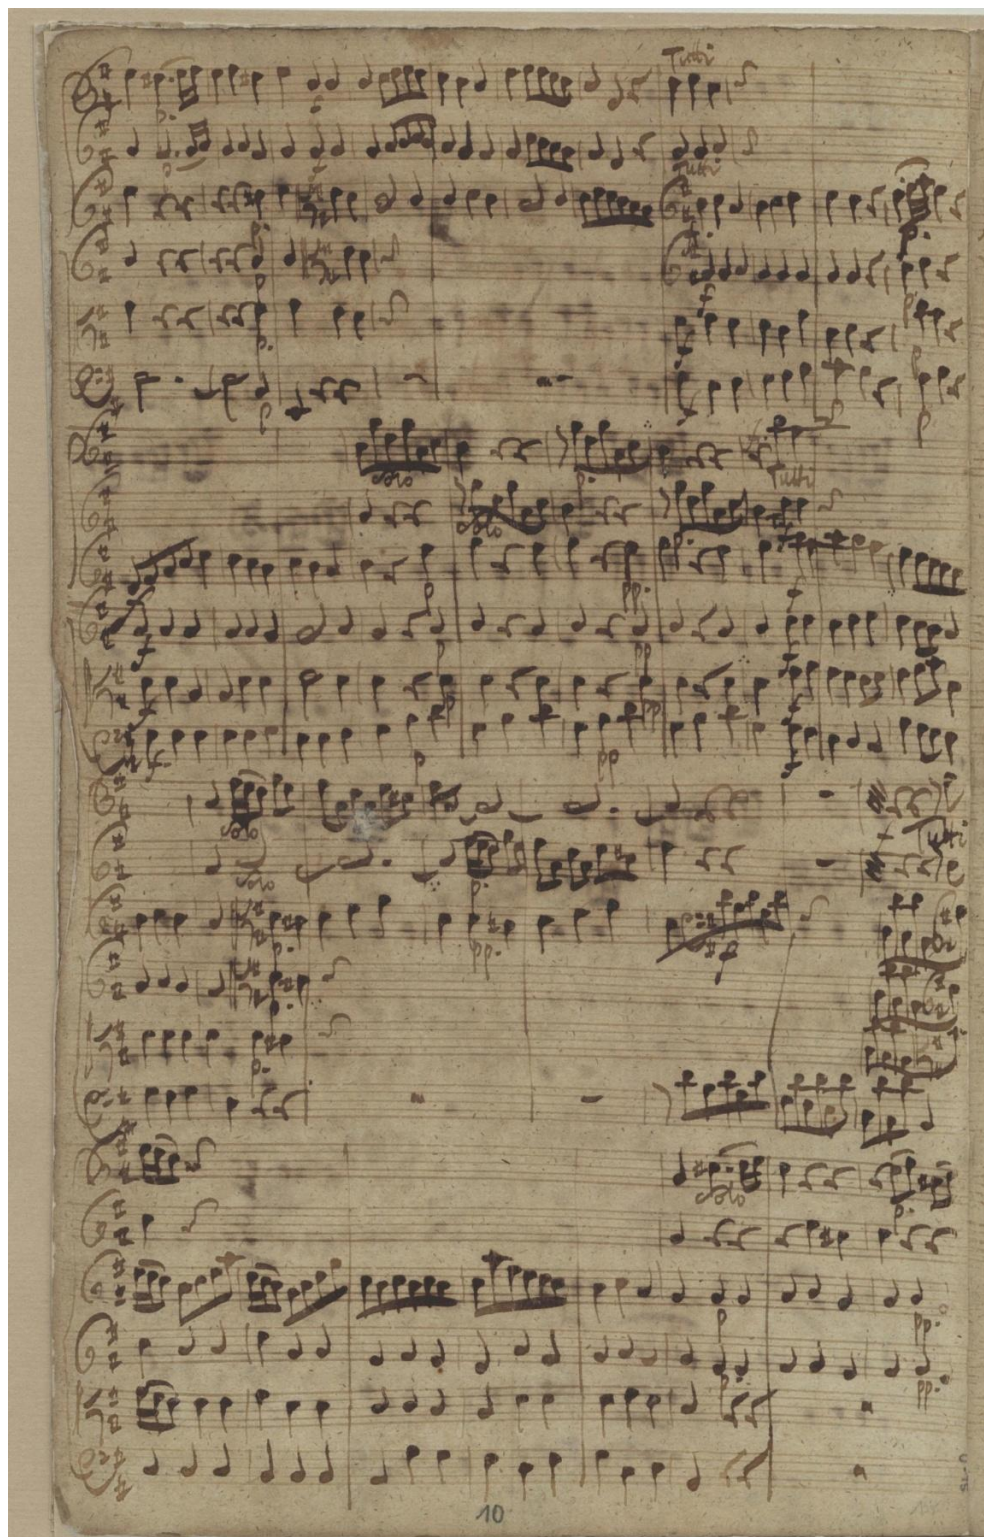 Tutti
p.
p
Tutti
p.
p.
p
f
p
p.
f
p
p
f
p
solo
p.
Tutti
solo
p
pp.
f
f
p
pp
f
f
pp
f
f
p
pp
f
solo
Tutti
solo
p.
p.
pp.
f
p.
p.
solo
p.
p
pp.
p.
pp.
10